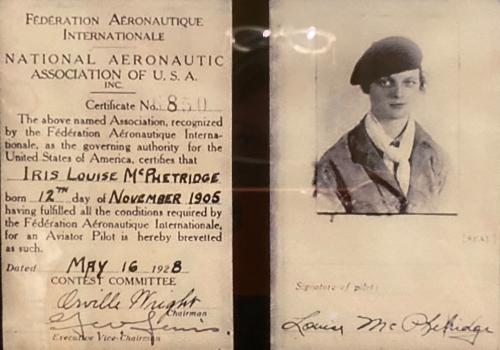 FÉDÉRATION AÉRONAUTIQUE
INTERNATIONALE
NATIONAL AERONAUTIC
ASSOCIATION OF U. S. A.
INC.
Certificate No. 850
The above named Association, recognized
by the Fédération Aéronautique Interna-
tionale, as the governing authority for the
United States of America, certifies that
IRIS LOUISE McPHETRIDGE
born 12TH day of NOVEMBER 1905
having fulfilled all the conditions required by
the Fédération Aéronautique Internationale,
for an Aviator Pilot is hereby brevetted
as such.
Dated MAY 16 1928
CONTEST COMMITTEE
Orville Wright
Chairman
Executive Vice-Chairman
[SEAL]
Signature of pilot:
Louise McPhetridge